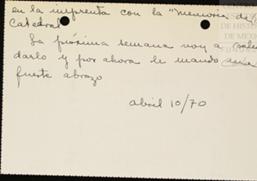 en la imprenta con la "Memoria de
Catedral
La próxima semana voy a salu
darlo y por ahora le mando un
fuerte abrazo
abril 10/70